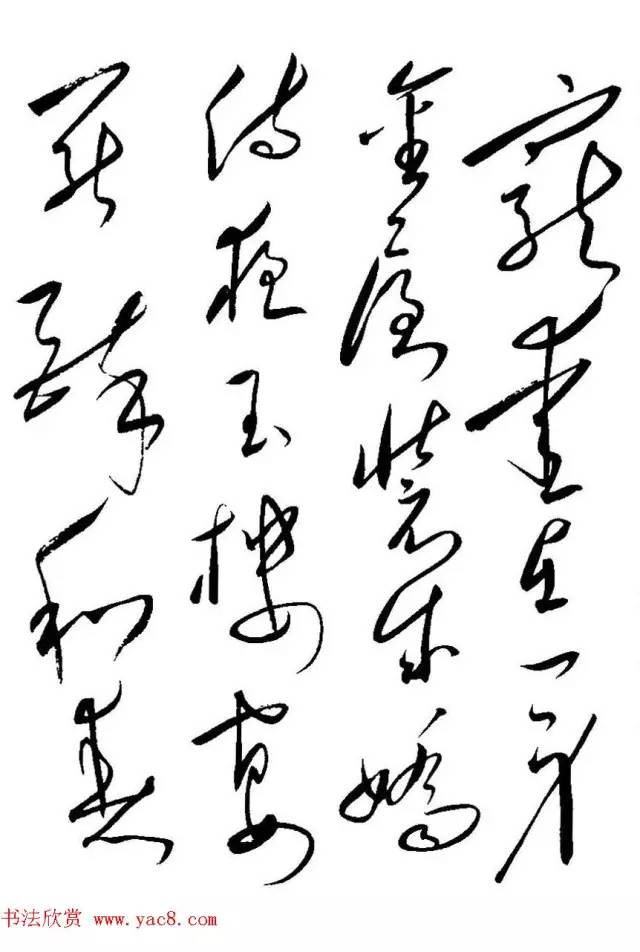 寵愛在一身
金屋粧成嬌
侍夜玉樓宴
罷醉和春
书法欣赏 www.yac8.com